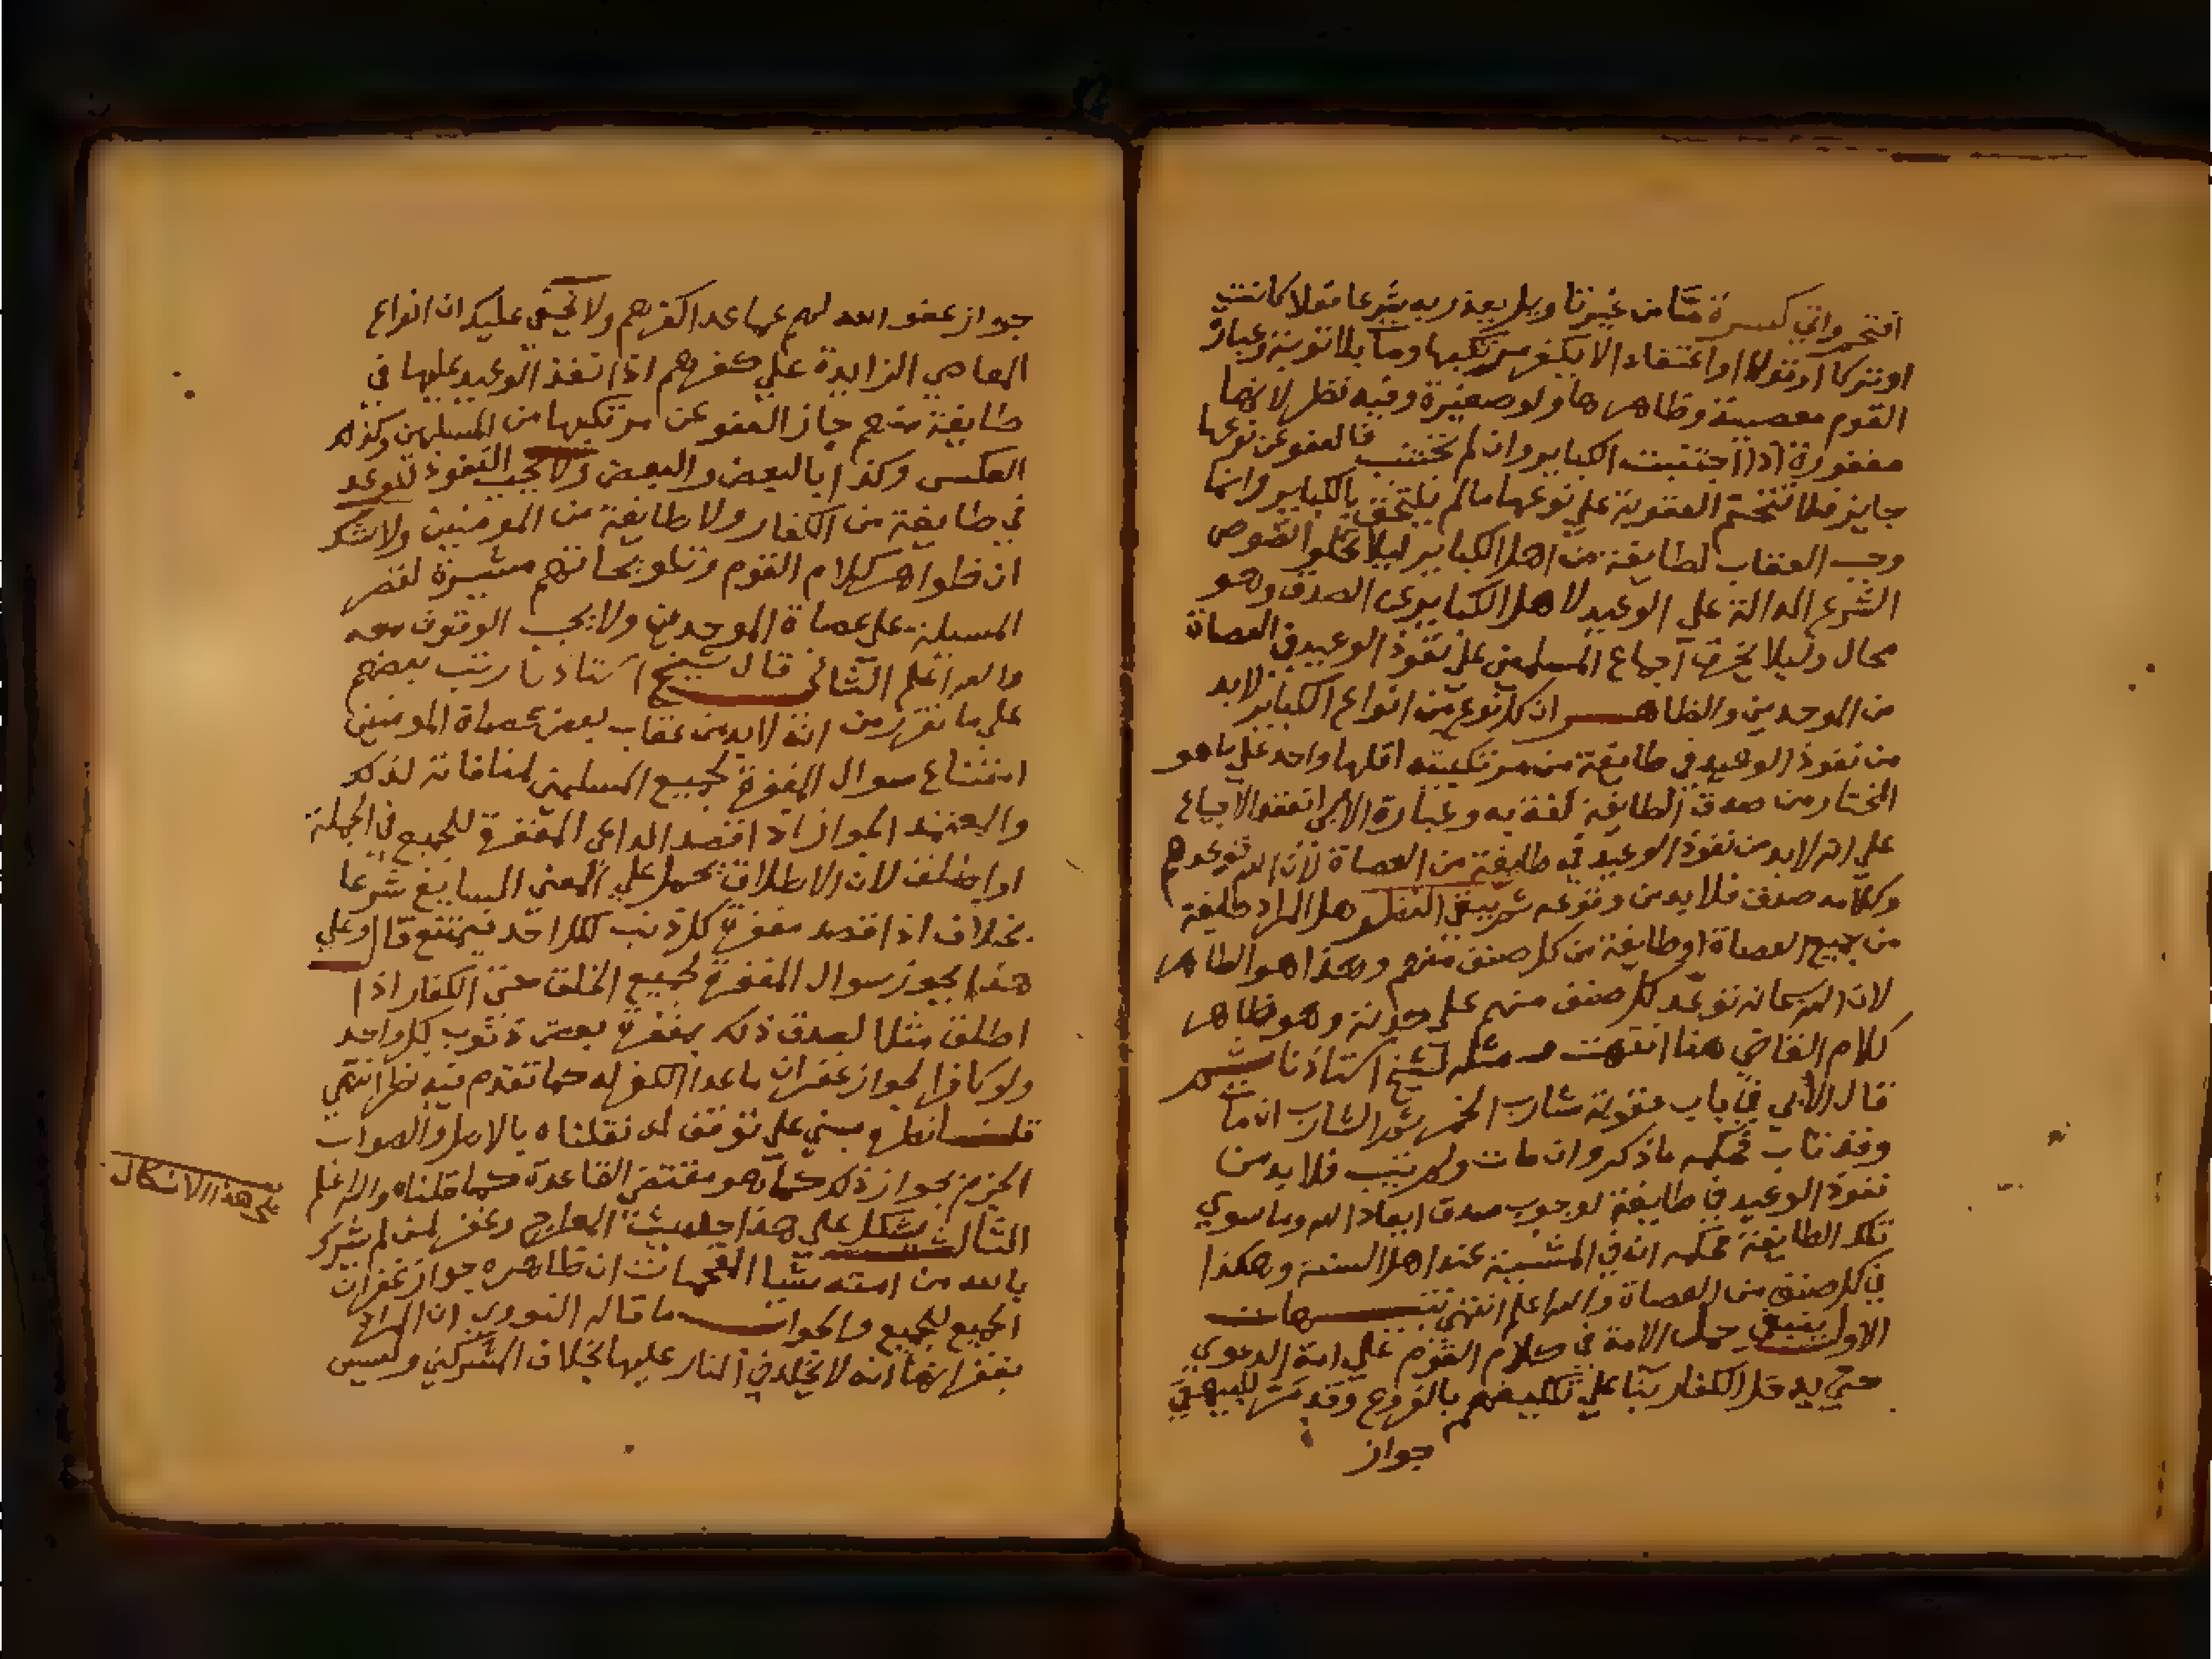 افتحم واتي كبيرة متا من غير تاويل يعذر به شرعا فعلا كانت
او تركا او قولا او اعتقاد الا يكفر مرتكبها ومات بلا توبة وعبارة
القوم معصية وظاهرها ولو صغيرة وفيه نظر لانها
مغفورة اذا اجتنبت الكباير وان لم تجتنب فالعفو عن نوعها
جايز فلا تتحتم العقوبة علي نوعها ما لم يلتحق بالكباير وانما
وجب العقاب لطايفة من اهل الكباير ليلا تخلو النصوص
الشرع الدالة علي الوعيد لاهل الكباير عن الصدق وهو
محال وليلا يخرق اجماع المسلمين علي نفوذ الوعيد في العصاة
من الموحدين والظاهر ان كل نوع من انواع الكباير لابد
من نفوذ الوعيد في طايفة من مرتكبيه اقلها واحد علي ما هو
المختار من صدق الطايفة لغة به وعبارة الابي انعقد الاجماع
علي انه لابد من نفوذ الوعيد في طايفة من العصاة لان الله توعدهم
وكلامه صدق فلا بد من وقوعه ثم يبقي النظر هل المراد طايفة
من جميع العصاة او طايفة من كل صنف منهم وهذا هو الظاهر
لان الله سبحانه توعد كل صنف منهم علي حدته وهو ظاهر
كلام القاضي هنا انتهت ومثله لشيخ استاذنا ثم
قال الابي في باب عقوبة شارب الخمر ثم الشارب ان مات
وقد تاب فحكمه ما ذكر وان مات ولم يتب فلا بد من
نفوذ الوعيد في طايفة لوجوب صدق ايعاد الله وما سوي
تلك الطايفة فحكمه انه في المشيية عند اهل السنة وهكذا
في كل صنف من العصاة والله اعلم انتهي تنبيهات
الاول ينبغي حمل الامة في كلام القوم علي امة الدعوي
حتي يدخل الكفار بنا علي تكليفهم بالفروع وقد مر للبيهقي
جواز
جواز عفو الله لهم عما عدا الكفر هم ولا يخفي عليك ان انواع
المعاصي الزايدة علي كفرهم اذا نفذ الوعيد عليها في
طايفة منهم جاز العفو عن مرتكبها من المسلمين وكذلك
العكس وكذا بالبعض والبعض ولا يجب النفوذ للوعد
في طايفة من الكفار ولا طايفة من المومنين ولا شك
ان ظواهر كلام القوم وتلويحاتهم مشيرة لقصر
المسيلة علي عصاة الموحدين ولا يجب الوقوف معه
والله اعلم الثاني قال شيخ استاذنا رتب بعضهم
علي ما تقرر من انه لا بد من عقاب بعض عصاة المومنين
امتناع سوال المغفرة لجميع المسلمين لمنافاته لذلك
والمعتمد الجواز اذا قصد الداعي المغفرة للجميع في الجملة
او اطلق لان الاطلاق يحمل علي المعني السايغ شرعا
بخلاف اذا قصد مغفرة كل ذنب لكل احد فيمتنع قال وعلي
هذا يجوز سوال المغفرة لجميع الخلق حتي الكفار اذا
اطلق مثلا لصدق ذلك بمغفرة بعض ذنوب كل واحد
ولو كافرا لجواز غفران ما عدا الكفر له كما تقدم فيه نظر انتهي
قلت نظره مبني علي توقف له نقلناه بالاصل والصواب
الجزم بجواز ذلك كما هو مقتضي القاعدة كما قلناه والله اعلم
الثالث يشكل علي هذا حديث المعراج وغفر لمن لم يشرك
بالله من امته شيا المقحمات ان ظاهره جواز غفران
الجميع للجميع والجواب ما قاله النووي ان المراد
بغفرانها انه لا يخلد في النار عليها بخلاف المشركين وليس
علي هذا الاشكال